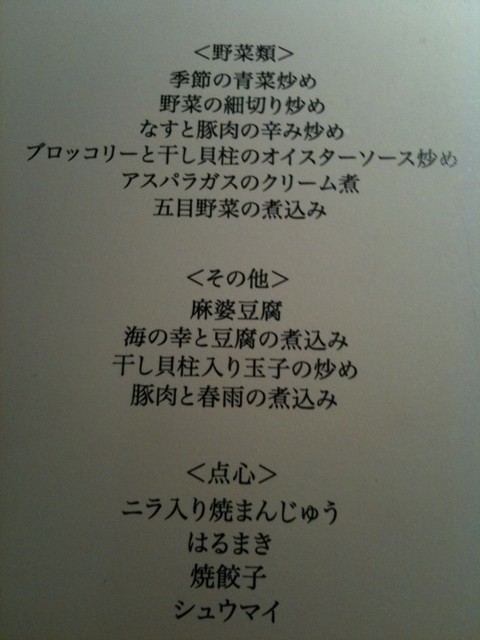 ＜野菜類＞
季節の青菜炒め
野菜の細切り炒め
なすと豚肉の辛み炒め
ブロッコリーと干し貝柱のオイスターソース炒め
アスパラガスのクリーム煮
五目野菜の煮込み
＜その他＞
麻婆豆腐
海の幸と豆腐の煮込み
干し貝柱入り玉子の炒め
豚肉と春雨の煮込み
＜点心＞
ニラ入り焼まんじゅう
はるまき
焼餃子
シュウマイ